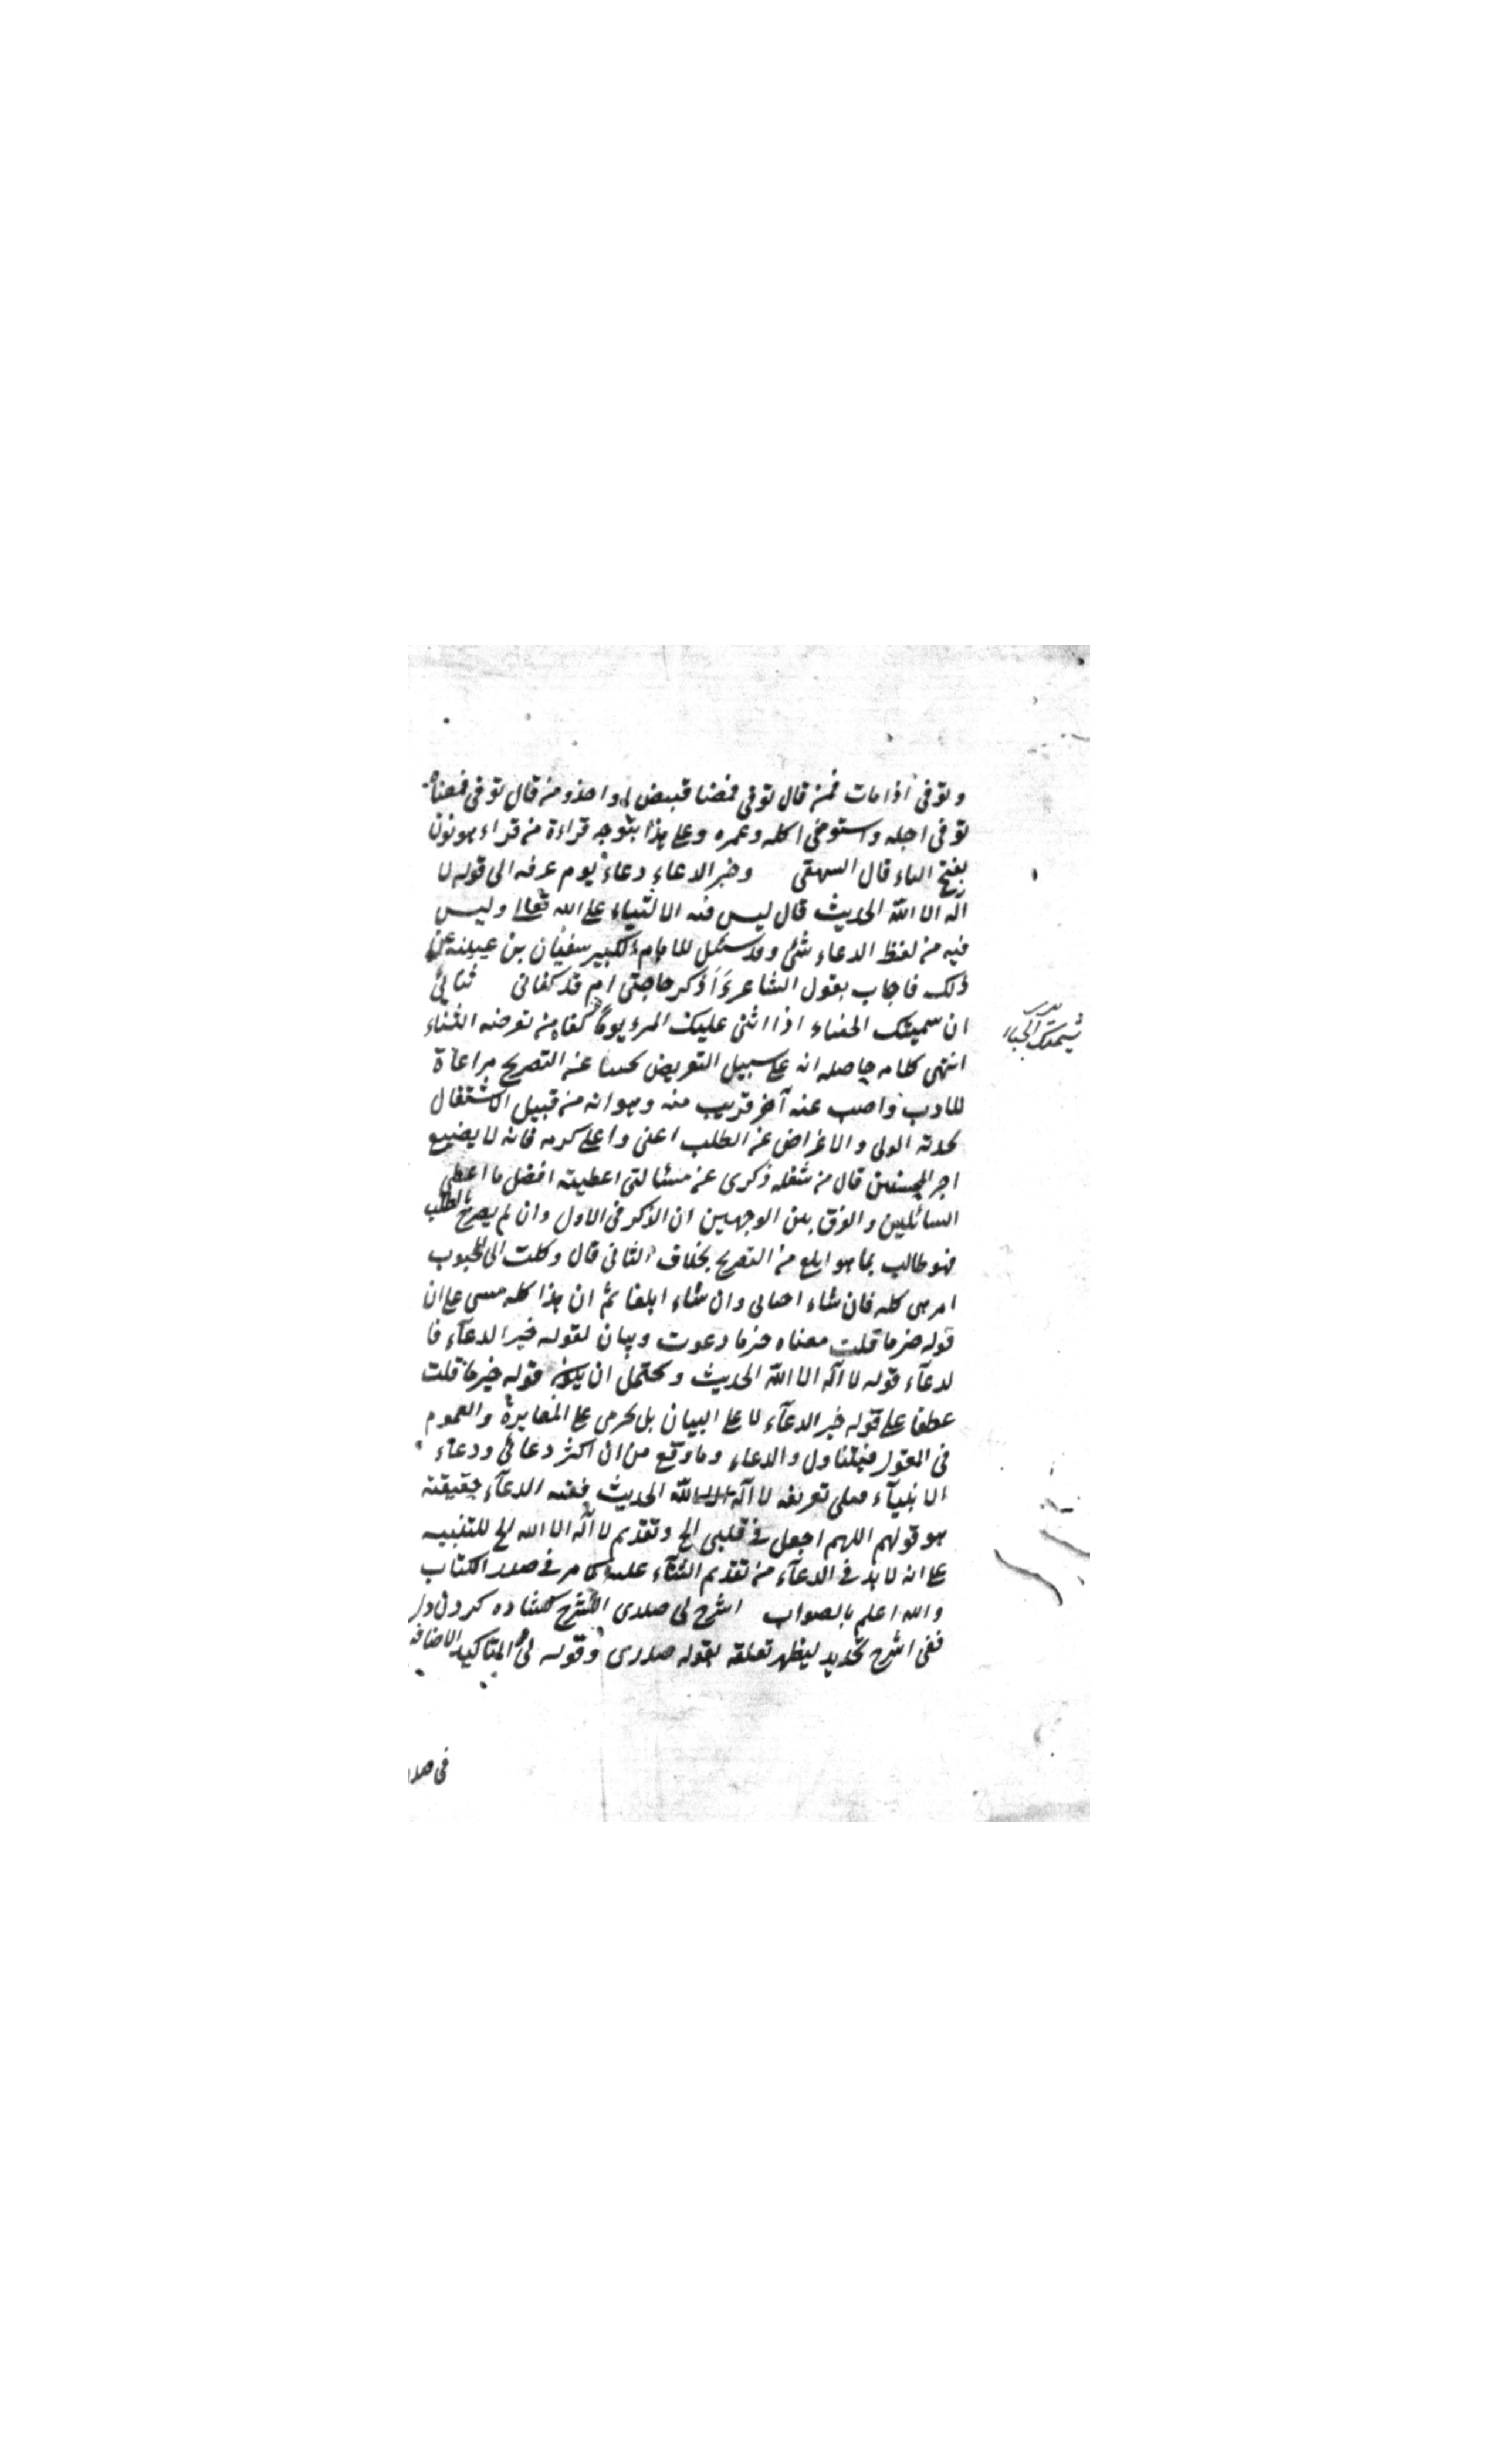 وتوفى اذا مات فمن قال توفى فمعناه قبض واخذ ومن قال توفى فمعناه
توفى اجله واستوفى اكله وعمره وعلى هذا يتوجه قراءة من قراء يتوفون
بفتح الياء قال البيهقى وخير الدعاء دعاء يوم عرفه الى قوله لا
اله الا الله الحديث قال ليس فيه الا الثناء على الله تعالى وليس
فيه من لفظ الدعاء شئ وقد سئل الامام الكبير سفيان بن عيينة عن
ذلك فاجاب بقول الشاعر أأذكر حاجتى ام قد كفانى ثنائى
ان شيمتك الحياء اذا اثنى عليك المرء يوما كفاه من تعرضه الثناء
شيمتك الحياء
انتهى كلامه حاصله انه على سبيل التعريض عن التصريح مراعاة
للادب واجيب عنه آخر قريب منه وهو انه من قبيل الاشتغال
المولى والاعراض عن الطلب اعتمادا على كرمه فانه لا يضيع
اجر المحسنين قال من شغله ذكرى عن مسئالتى اعطيته افضل ما اعطى
السائلين والفرق بين الوجهين ان الذكر فى الاول وان لم يصرح بالطلب
فهو طالب بما هو ابلغ من التصريح بخلاف الثانى قال وكلت الى المحبوب
امرى كله فان شاء احيانى وان شاء اتلفا ثم ان هذا كله مبنى على ان
قوله خير ما قلت معناه خير ما دعوت وبيان لقوله خير الدعآء فا
لدعآء قوله لا اله الا الله الحديث ويحتمل ان يكون قوله خير ما قلت
عطفا على قوله خير الدعآء لا على البيان بل يجرى على المغايرة والعموم
فى القول فيتناول والدعاء وما وقع من ان اكثر دعائى ودعآء
الانبيآء قبلى بعرفه لا اله الا الله الحديث ففيه الدعآء حقيقته
هو قولهم اللهم اجعل فى قلبى الخ وتقديم لا اله الا الله الخ للتنبيه
على انه لا بد فى الدعآء من تقديم الثنآء عليه كما مر فى صدر الكتاب
والله اعلم بالصواب اشرح لى صدرى الشرح كشاده كردن دل
ففى اشرح تجريد ليظهر تعلقه بقوله صدرى وقوله لى لتاكيد الاضافه
فى صدر